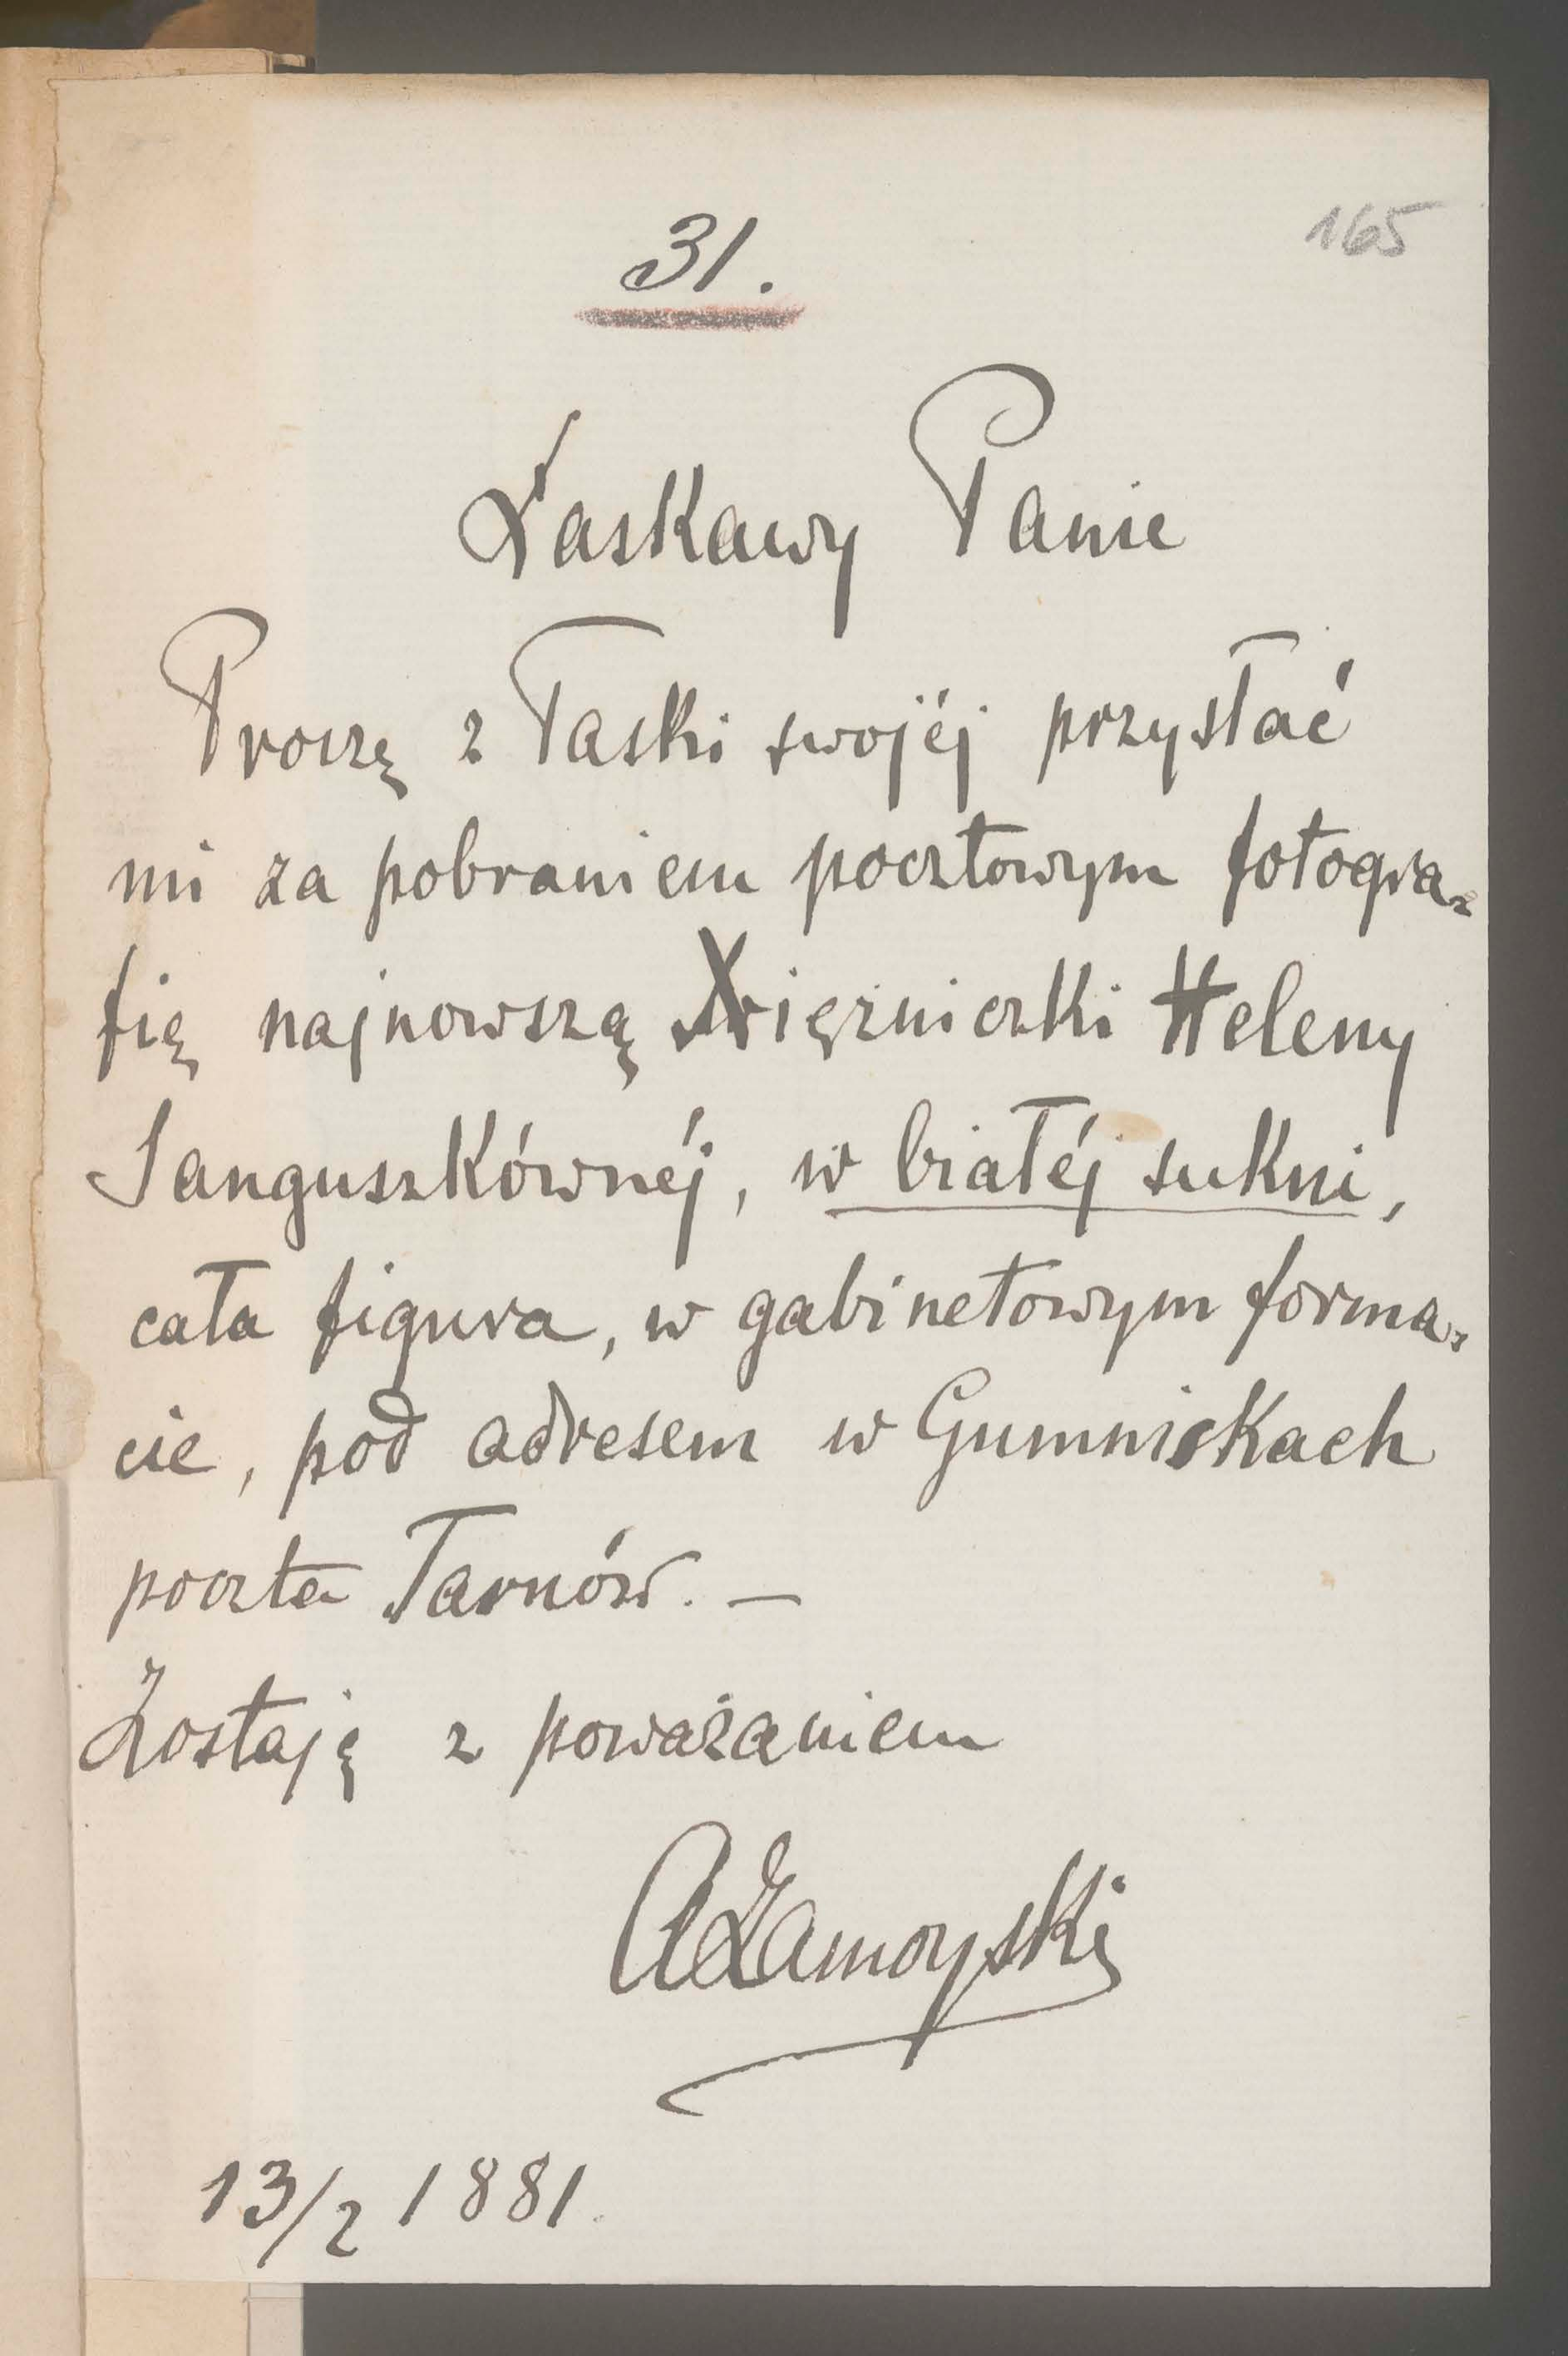 165
31.
Łaskawy Panie
Proszę z łaski swojéj przysłać
mi za pobraniem pocztowym fotogra-
fię najnowszą Xiężniczki Heleny
Sanguszkównéj, w białéj sukni,
cała figura, w gabinetowym forma-
cie, pod adresem w Gumniskach
poczta Tarnów. —
Zostaję z poważaniem
AZamoyski
13/2 1881.